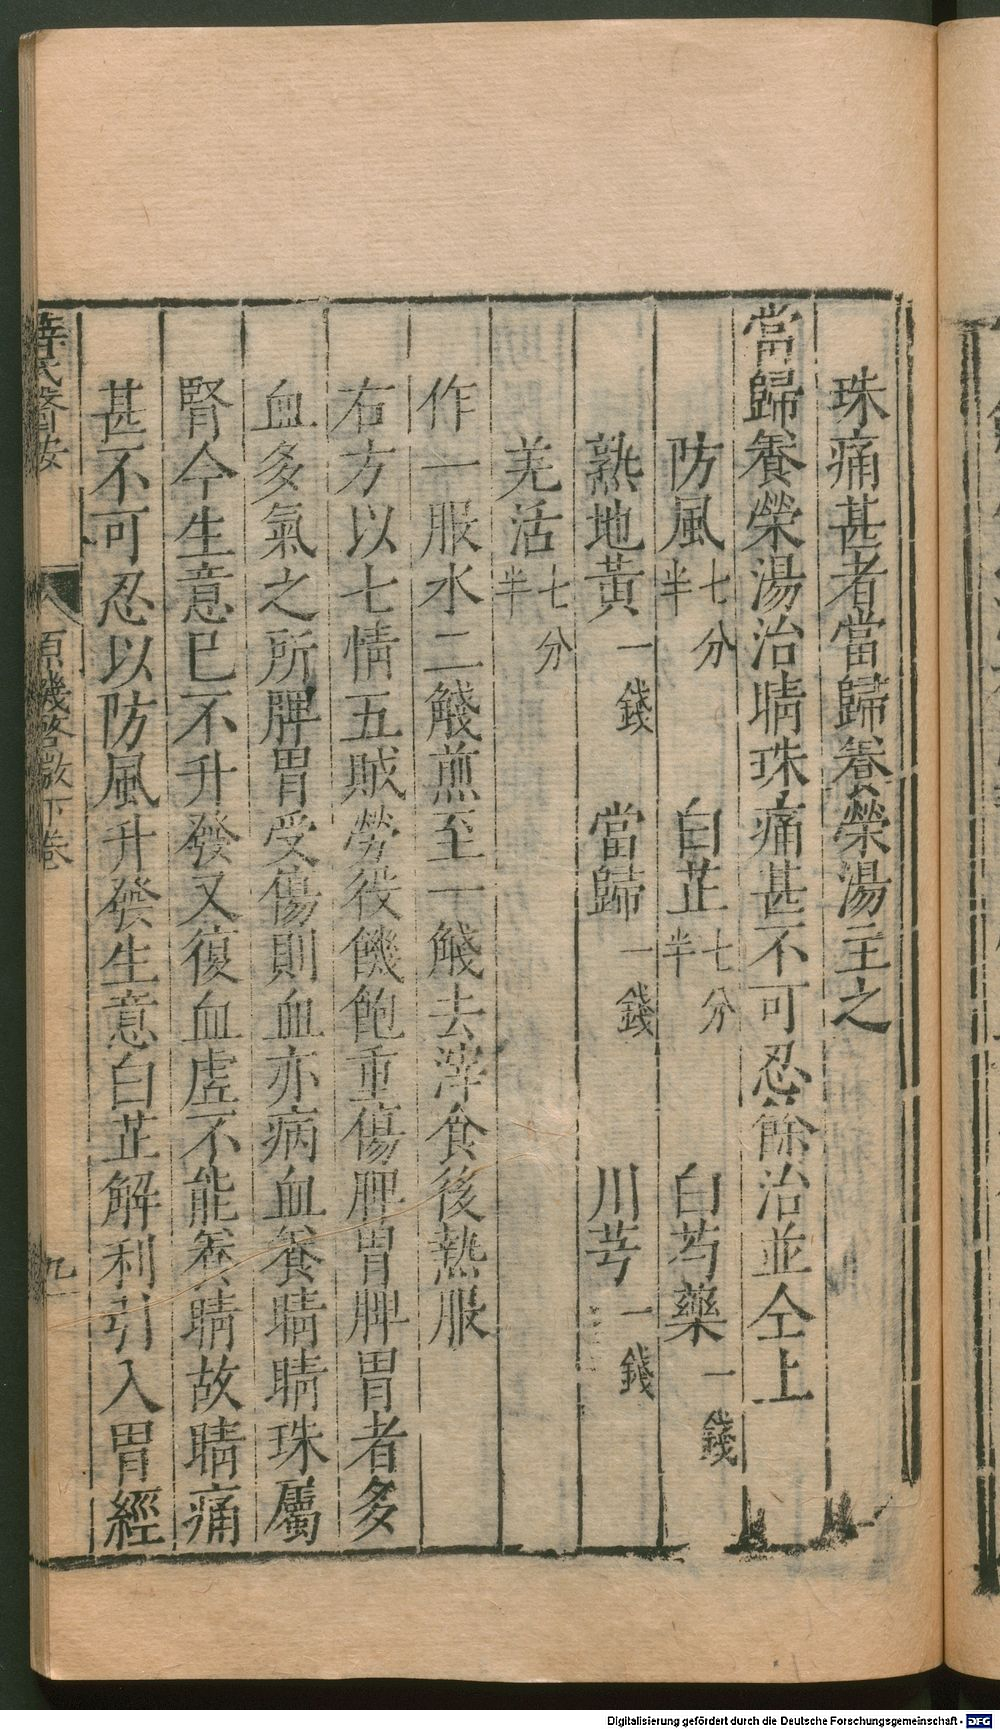 珠痛甚者當歸養榮湯主之
當歸養榮湯治睛珠痛甚不可忍餘治並仝上
防風七分半 白芷七分半 白芍藥一錢
熟地黃一錢 當歸一錢 川芎一錢
羌活七分半
作一服水二盞煎至一盞去滓食後熱服
右方以七情五賊勞役饑飽重傷脾胃脾胃者多
血多氣之所脾胃受傷則血亦病血養睛睛珠屬
腎今生意已不升發又復血虛不能養睛故睛痛
甚不可忍以防風升發生意白芷解利引入胃經
薛氏醫按 原機啓微下卷 九
Digitalisierung gefördert durch die Deutsche Forschungsgemeinschaft - DFG